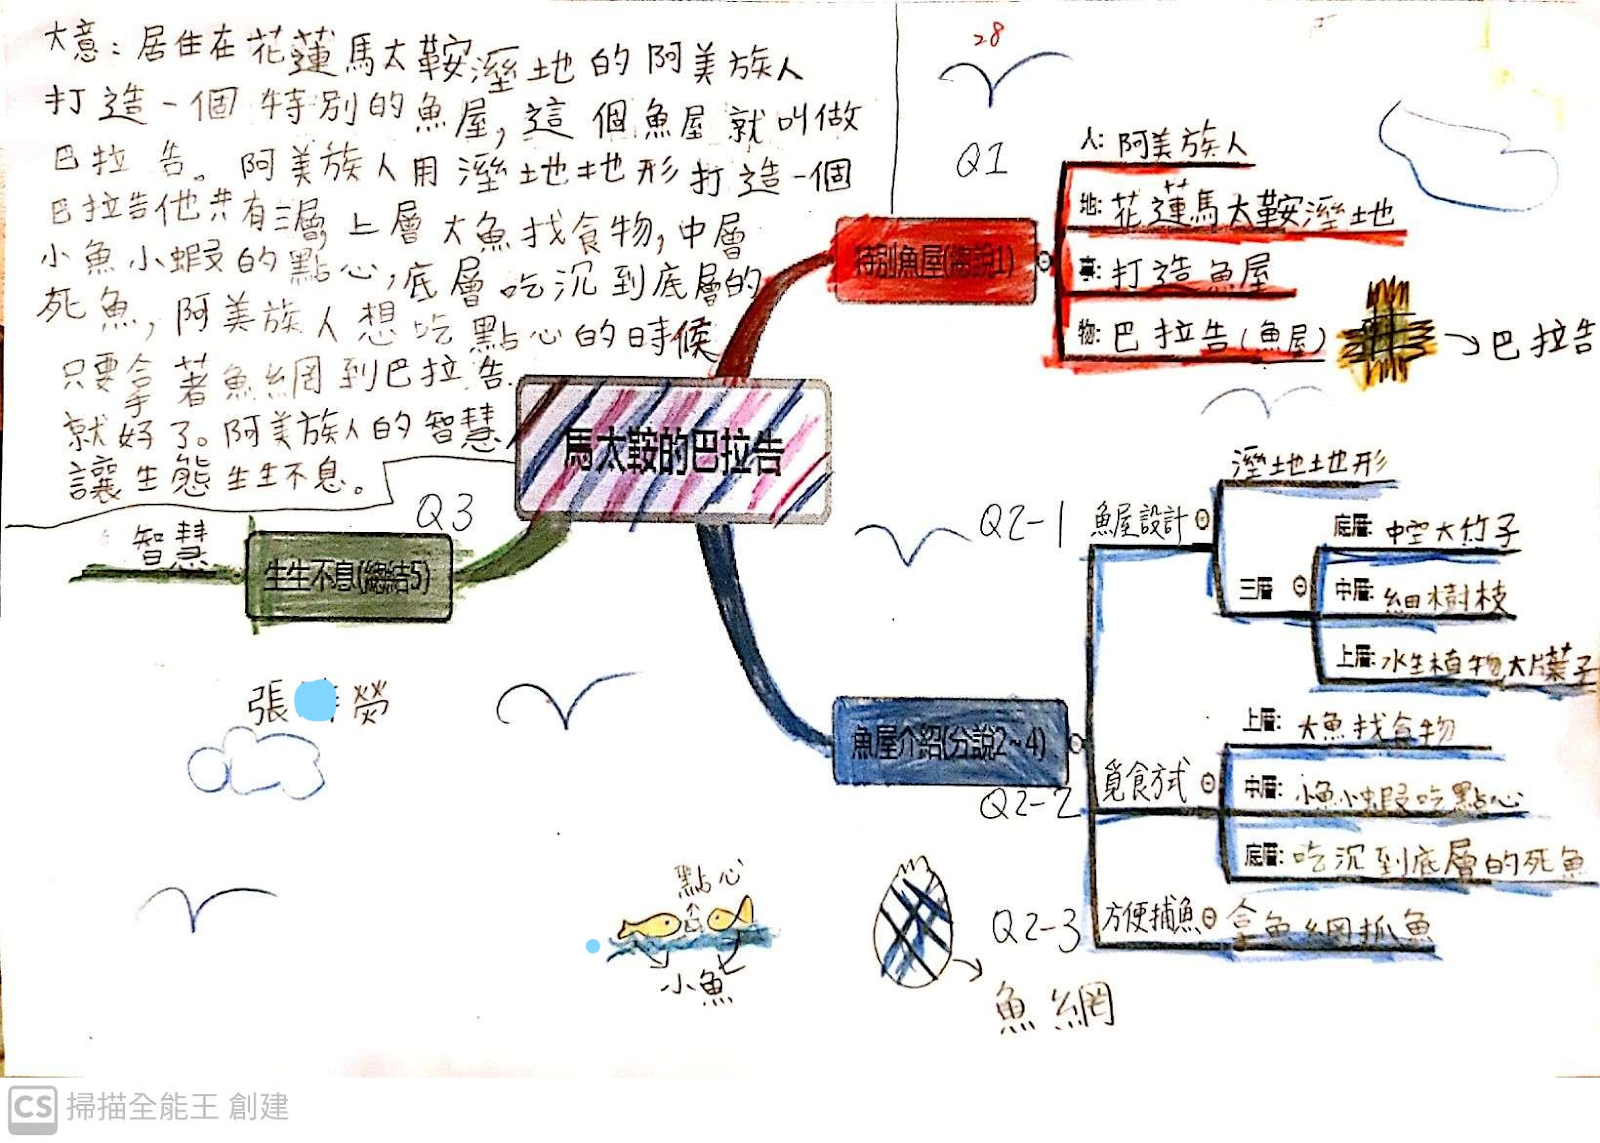 大意：居住在花蓮馬太鞍溼地的阿美族人
打造一個特別的魚屋，這個魚屋就叫做
巴拉告。阿美族人用溼地地形打造一個
巴拉告他共有三層，上層大魚找食物，中層
小魚小蝦的點心，底層吃沉到底層的
死魚，阿美族人想吃點心的時候
只要拿著魚網到巴拉告
就好了。阿美族人的智慧
讓生態生生不息。
28
Q1
特別魚屋(總說1)
人: 阿美族人
地: 花蓮馬太鞍溼地
事: 打造魚屋
物: 巴拉告(魚屋)
巴拉告
馬太鞍的巴拉告
Q3
智慧
生生不息(總結5)
張
熒
魚屋介紹(分說2~4)
Q2-1
魚屋設計
溼地地形
三層
底層: 中空大竹子
中層: 細樹枝
上層: 水生植物,大片葉子
Q2-2
覓食方式
上層: 大魚找食物
中層: 小魚小蝦吃點心
底層: 吃沉到底層的死魚
Q2-3
方便捕魚
拿魚網抓魚
點心
小魚
魚網
CS 掃描全能王 創建